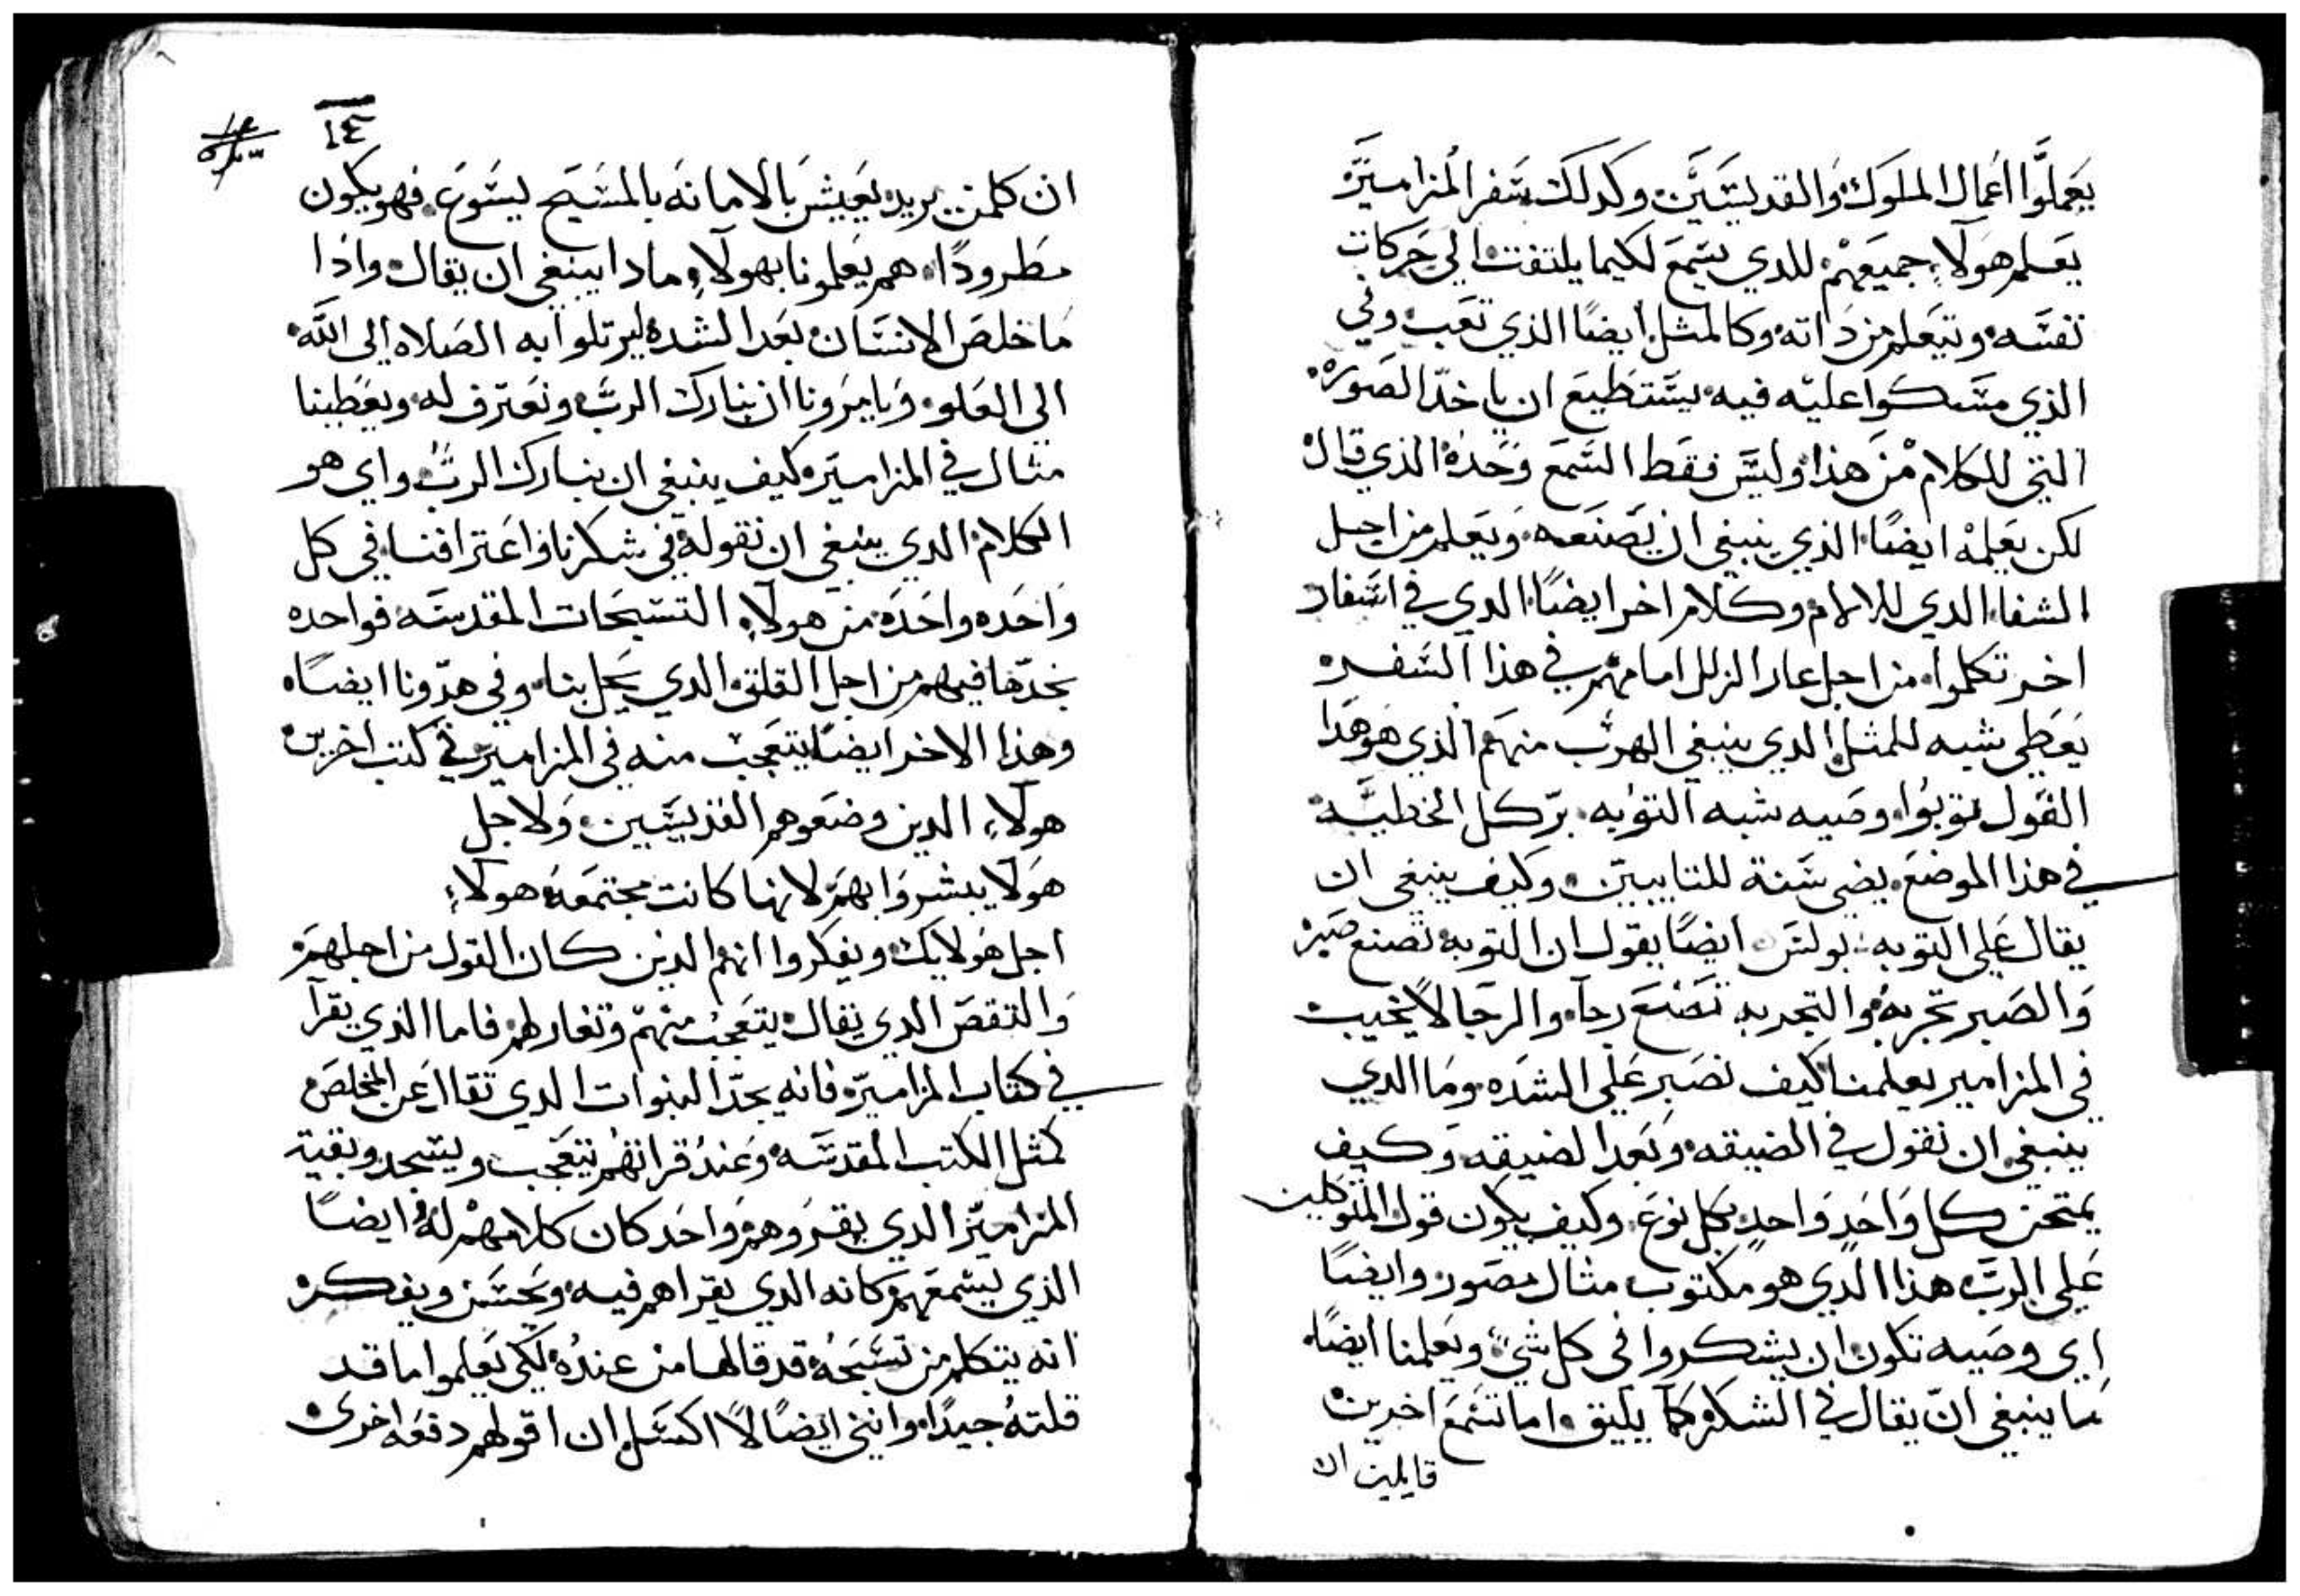 يعملوا اعمال الملوك والقديسين وكدلك سفر المزامير
يعلم هولاء جميعهم للدي يسمع لكيما يلتفت الي حركات
نفسه ويتعلم من داته وكالمثل ايضًا الذي تعب وفي
الذي مسكوا عليه فيه يستطيع ان ياخد الصوره
التي للكلام من هذا وليس فقط السمع وحده الذي قال
لكن يعلمه ايضًا الذي ينبغي ان يصنعه ويعلم من اجل
الشفا الدي للالام وكلام اخر ايضًا الدي في اسفار
اخر تكلموا من اجل عار الزلل امامهم في هذا السفر
يعطي شبه للمثل الدي ينبغي الهرب منهم الذي هو هدا
القول توبوا وصيه شبه التوبه برّ كل الخطيه
في هذا الموضع يضي سنة للتايبين وكيف ينبغي ان
يقال علي التوبه بولس ايضًا يقول ان التوبه تصنع صبر
والصبر تجربه والتجربه تصنع رجاء والرجا لا يخيب
في المزامير يعلمنا كيف نصبر علي الشده وما الدي
ينبغي ان نقول في الضيقه وبعد الضيقه وكيف
يمتحن كل واحد واحد بكل نوع وكيف يكون قول المتوكلين
علي الرب هذا الدي هو مكتوب مثال مصور وايضًا
اي وصيه تكون ان يشكروا في كل شيء ويعلمنا ايضًا
ما ينبغي ان يقال في الشكر كما يليق اما تسمع اخرين
قايلين ان
١٤
ان كلمن يريد يعيش بالامانه بالمسيح يسوع فهو يكون
مطرودًا هم يعلمونا بهولاء مادا ينبغي ان يقال واذا
ما خلص الانسان بعد الشده ليرتلوا به الصلاه الي الله
الي العلو ويامرونا ان نبارك الرب ونعترف له ويعطينا
مثال في المزامير كيف ينبغي ان نبارك الرب واي هو
الكلام الدي ينبغي ان نقوله في شكرنا واعترافنا في كل
واحده واحده من هولاء التسبحات المقدسه فواحده
نجدها فيهم من اجل القلق الدي يحل بنا وفي هدونا ايضًا
وهذا الاخر ايضًا يتعجب منه في المزامير في كتب اخرين
هولاء الدين وضعوهم القديسين ولاجل
هولا يبشروا بهم لانها كانت مجتمعه هولاء
اجل هولايك ويفكروا انهم الدين كان القول من اجلهم
والتقص الدي يقال يتعجب منهم وتغار لهم فاما الذي يقرأ
في كتاب المزامير فانه يجد النبوات الدي تقال عن المخلص
كمثل الكتب المقدسه وعند قرانهم يتعجب ويسجد وبقية
المزامير الدي يقروهم واحد كان كلامهم له ايضًا
الذي يسمعهم كانه الدي يقراهم فيه ويحسن ويفكر
انه يتكلم من تسبحه قد قالها من عنده لكي يعلموا ما قد
قلته جيدًا وانني ايضًا لا اكسل ان اقولهم دفعه اخرى